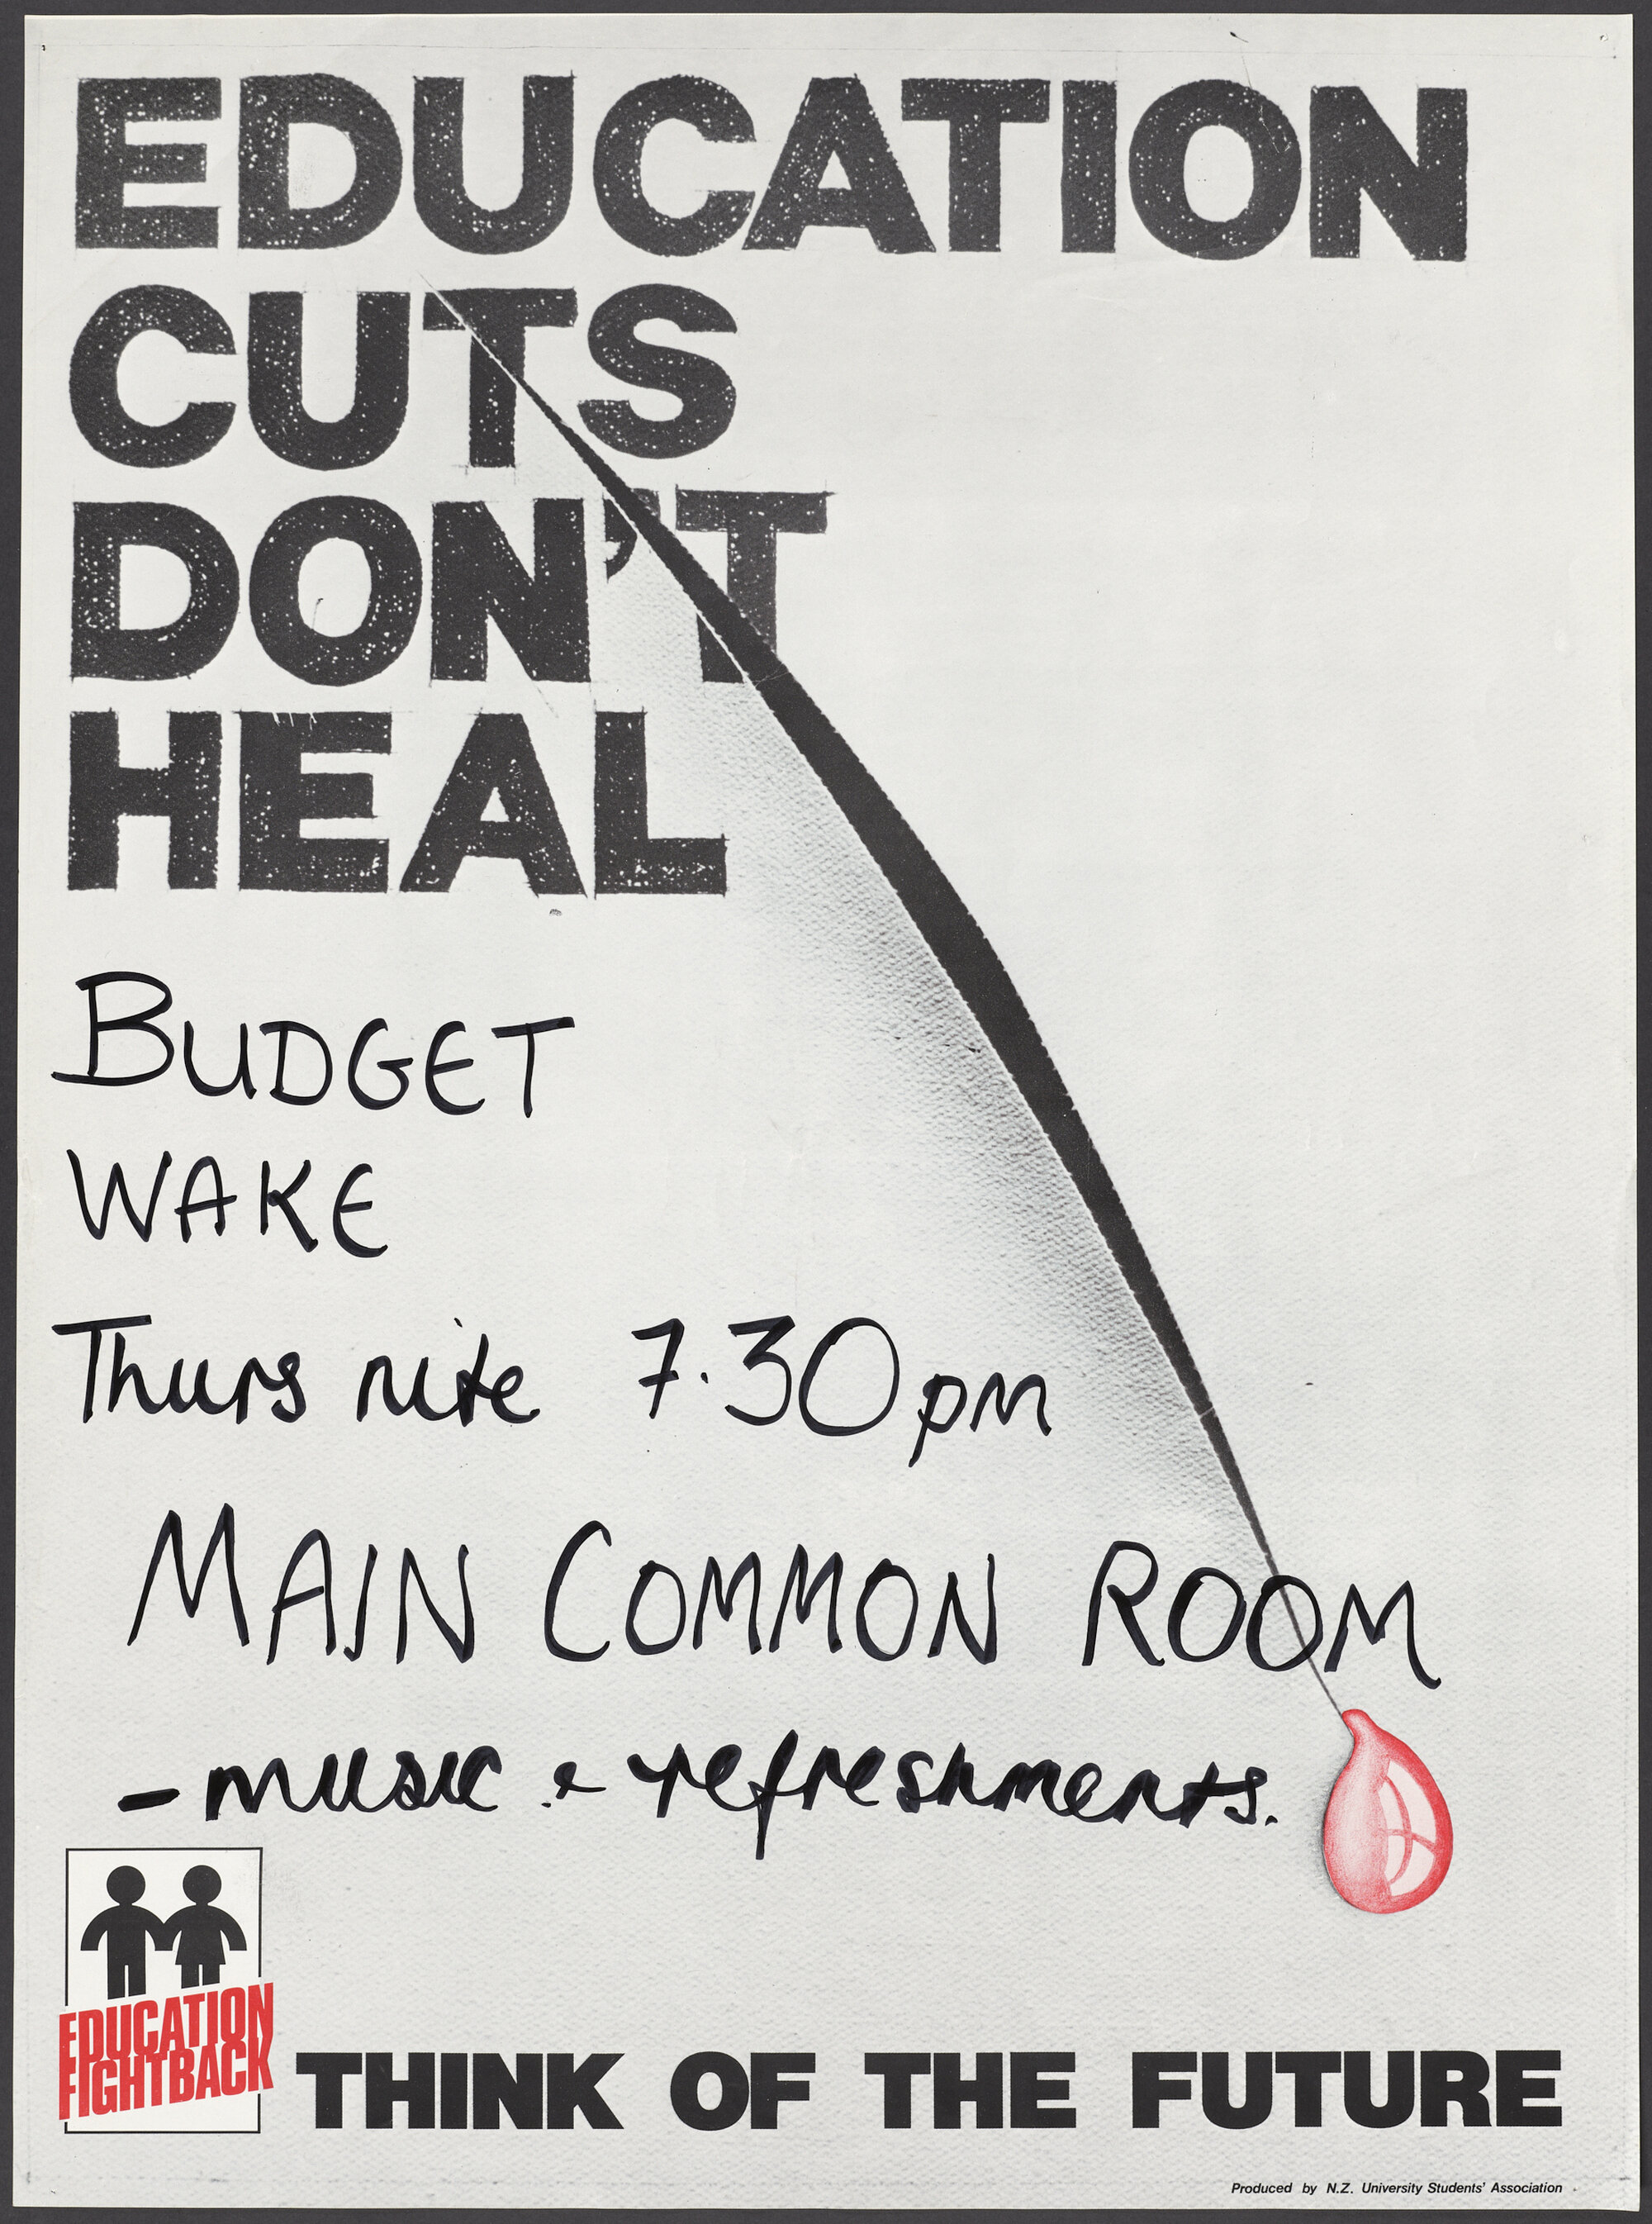 EDUCATION
CUTS
DON'T
HEAL
BUDGET
WAKE
Thurs nite 7.30pm
MAIN COMMON ROOM
- music & refreshments.
EDUCATION
FIGHTBACK
THINK OF THE FUTURE
Produced by N.Z. University Students' Association